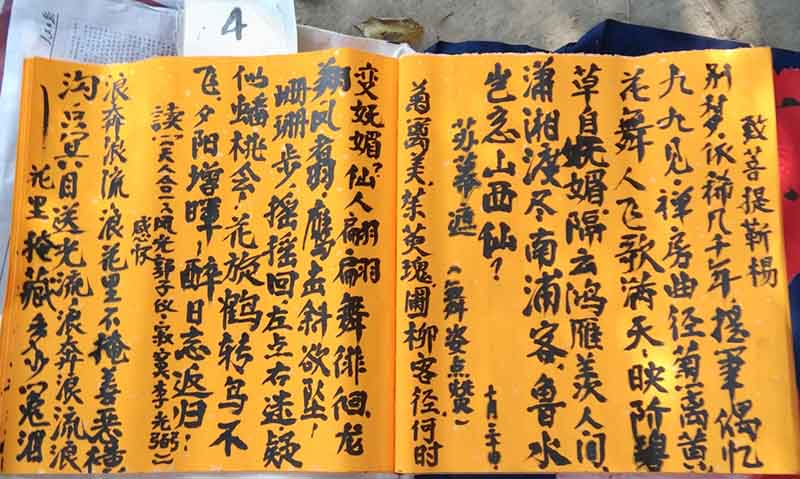 4
致菩提靳杨
别梦依稀几千年，提笔偶忆
九九见，禅房曲径菊离黄
花舞人飞歌满天，映阶碧
草自妩媚，隔云鸿雁羡人间，
潇湘渡尽南浦客，鲁水
岂忘山西仙？
苏幕遮（舞姿点赞）
美，茱萸瑰，圃柳客径何时
变妩媚？仙人翩翩舞徘徊，龙
翔凤翥，鹰击斜欲坠！
姗姗步，摇摇回，左点右迷疑
似蟠桃会，花旋鹤转鸟不
飞，夕阳增晖！醉日忘返归！
读《天人合一，风光郭子仪，寂寞李光弼》
感怀
浪奔浪流，浪花里不掩善恶横
沟，只冥目送光流，浪奔浪流，浪
花里掩藏多少冤泪